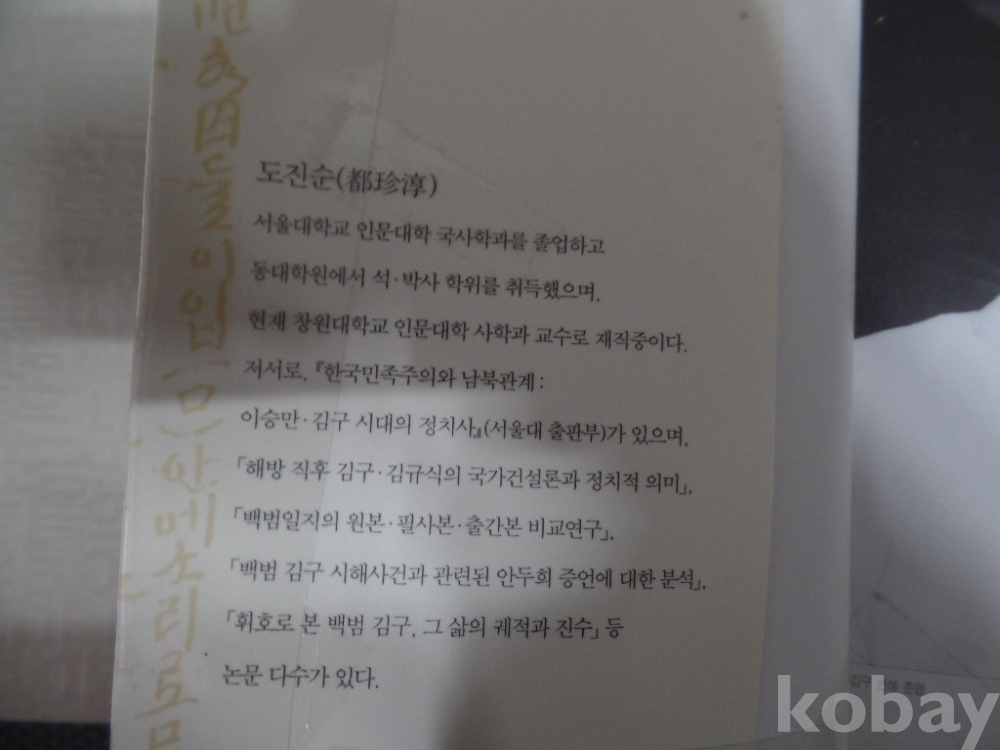 도진순(都珍淳)
서울대학교 인문대학 국사학과를 졸업하고
동대학원에서 석·박사 학위를 취득했으며,
현재 창원대학교 인문대학 사학과 교수로 재직중이다.
저서로, 『한국민족주의와 남북관계:
이승만·김구 시대의 정치사』(서울대 출판부)가 있으며,
「해방 직후 김구·김규식의 국가건설론과 정치적 의미」,
「백범일지의 원본·필사본·출간본 비교연구」,
「백범 김구 시해사건과 관련된 안두희 증언에 대한 분석」,
「휘호로 본 백범 김구, 그 삶의 궤적과 진수」 등
논문 다수가 있다.
김구
kobay